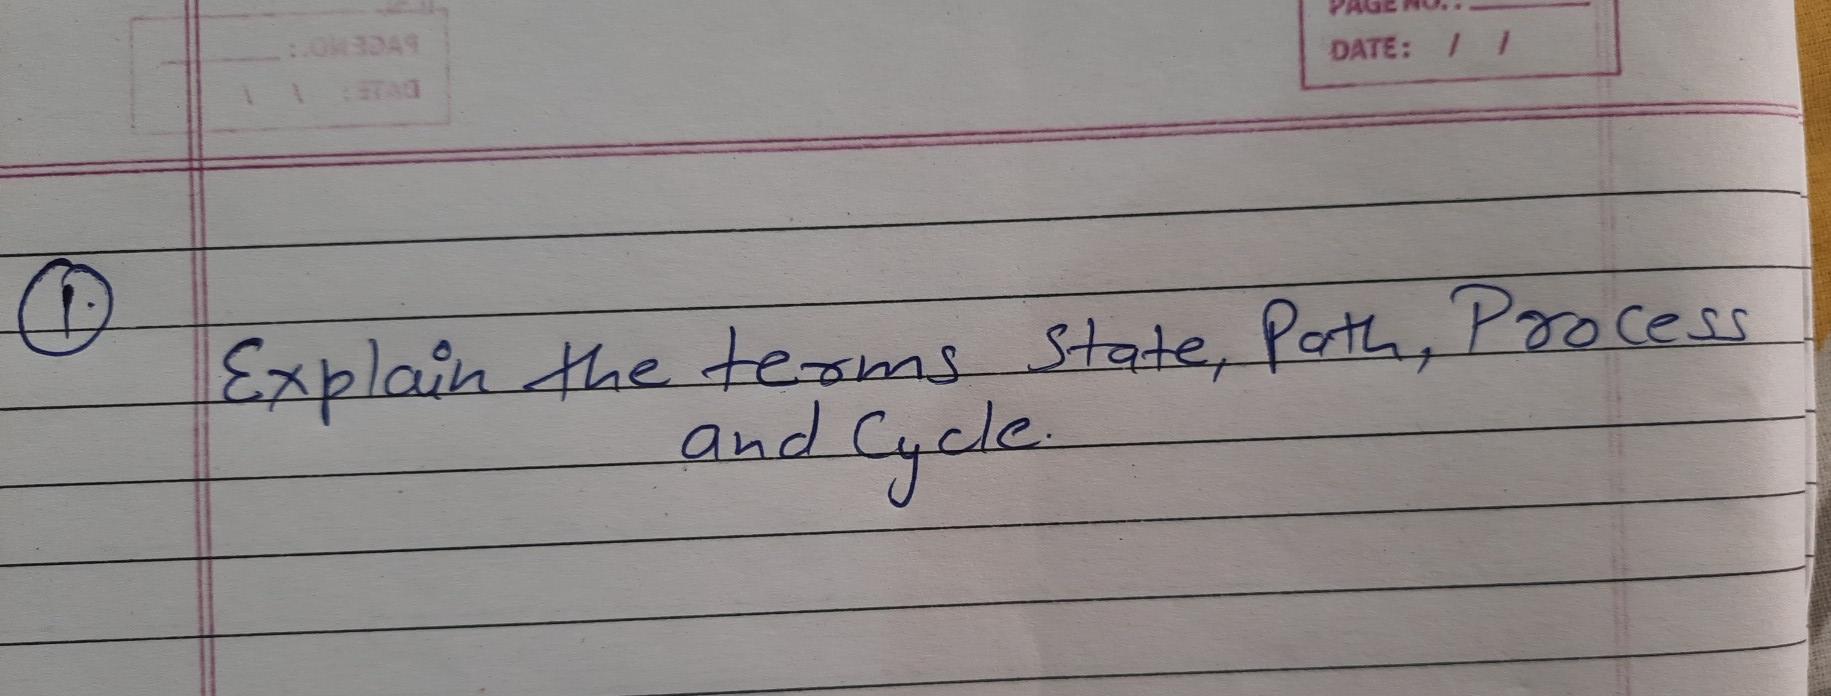 PAGE NO.:
DATE: / /
1.
Explain the terms State, Path, Process
and Cycle.